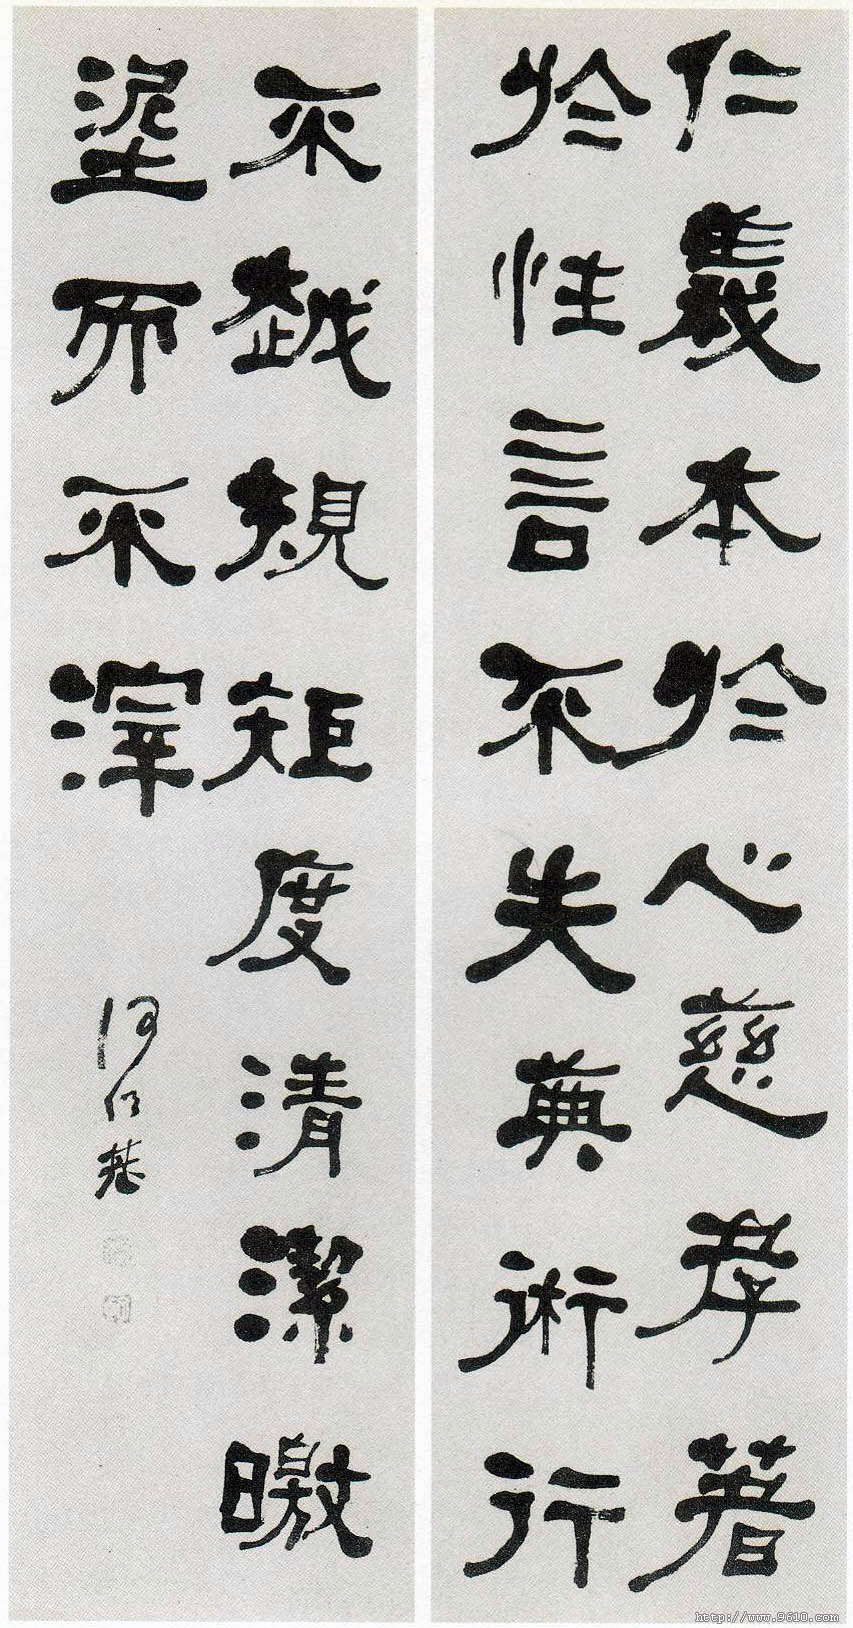 仁義本於心慈孝著
於性言不失典術行
不越規矩度清潔曒
埿而不滓
何紹基
http://www.9610.com